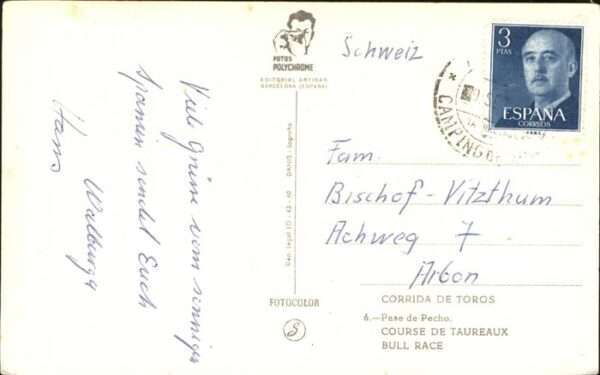 Viele Grüsse vom sonnigen
Spanien sendet Euch
Hans Walburga
FOTOS
POLYCHROME
EDITORIAL ARTIGAS
BARCELONA (ESPAÑA)
FOTOCOLOR
Schweiz
3
PTAS
ESPAÑA
CORREOS
CAMPING
Fam.
Bischof-Vitzthum
Achweg 7
Arbon
CORRIDA DE TOROS
6.—Pase de Pecho.
COURSE DE TAUREAUX
BULL RACE